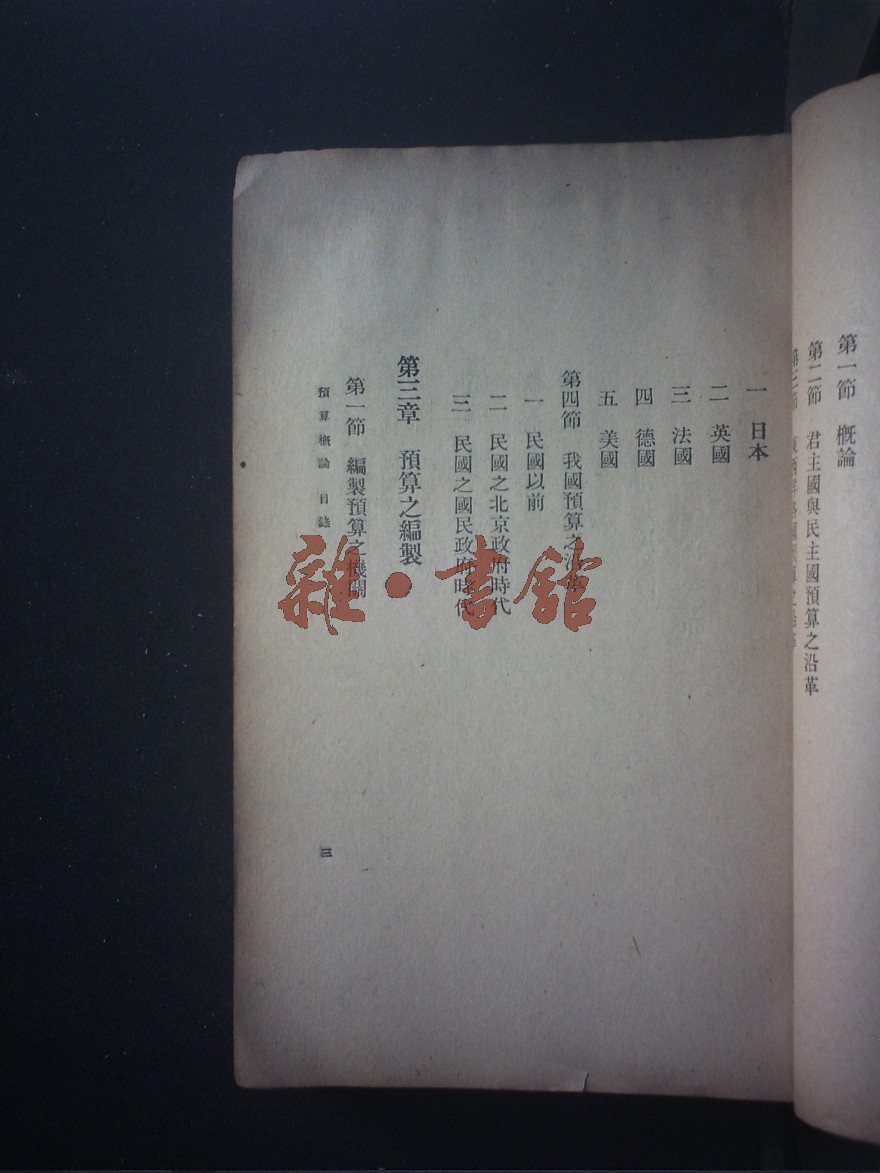 第一節 概論
第二節 君主國與民主國預算之沿革
第三節
一 日本
二 英國
三 法國
四 德國
五 美國
第四節 我國預算之沿革
一 民國以前
二 民國之北京政府時代
三 民國之國民政府時代
第三章 預算之編製
第一節 編製預算之機關
預算概論 目錄
三
雜·書館